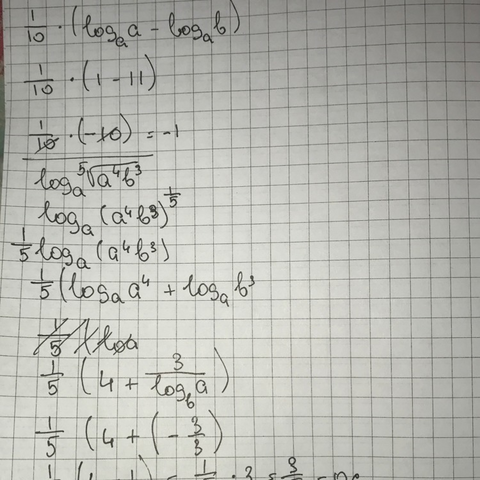 1/10 · (logₐa - logₐb)
1/10 · (1 - 11)
1/10 · (-10) = -1
logₐ⁵√(a⁴b³)
logₐ(a⁴b³)^(1/5)
1/5 logₐ(a⁴b³)
1/5 (logₐa⁴ + logₐb³
1/5 (4 + 3/(log_b a))
1/5 (4 + (- 3/3)